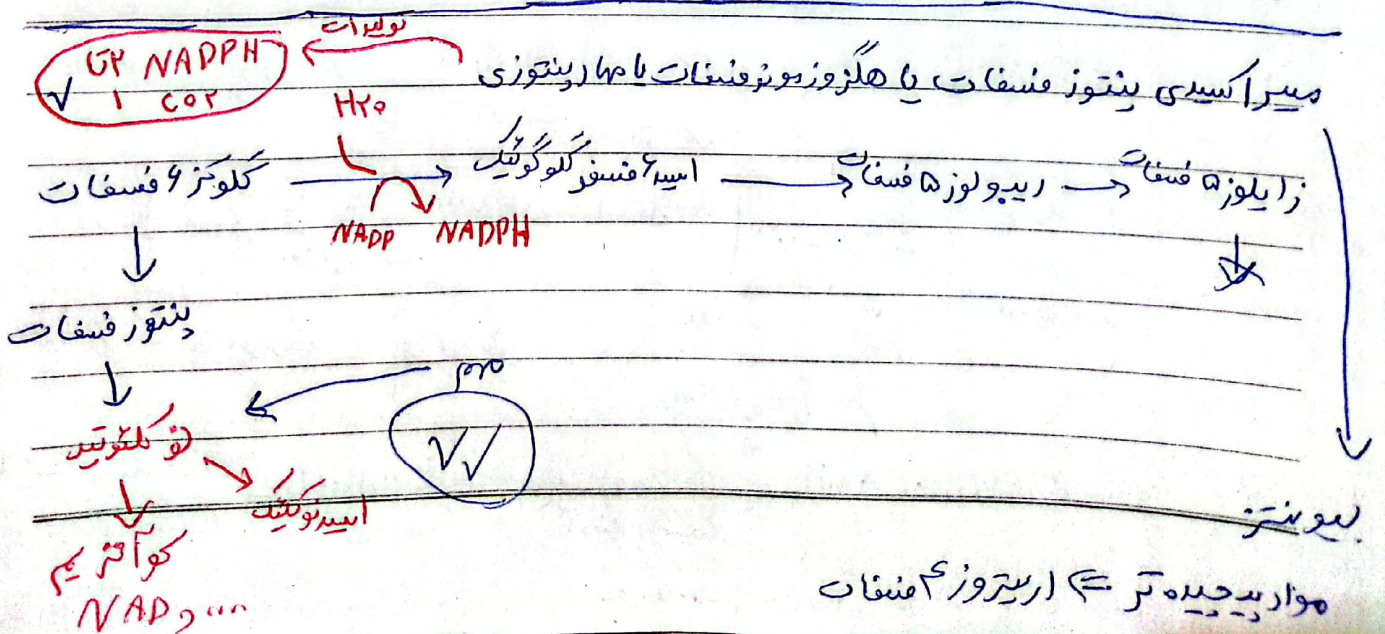 مسیر اکسیدی پنتوز فسفات یا هگزوز مونو فسفات یا مهار پنتوزی
تولیدات
۲تا NADPH
۱ CO۲
H۲O
گلوکز ۶ فسفات → اسید ۶ فسفو گلوکونیک → ریبولوز ۵ فسفات → زایلوز ۵ فسفات
NADP NADPH
پنتوز فسفات
مهم
نوکلئوتید
اسید نوکلئیک
کوآنزیم
NAD و ...
بیوسنتز
مواد پیچیده تر ⇐ اریتروز ۴ فسفات